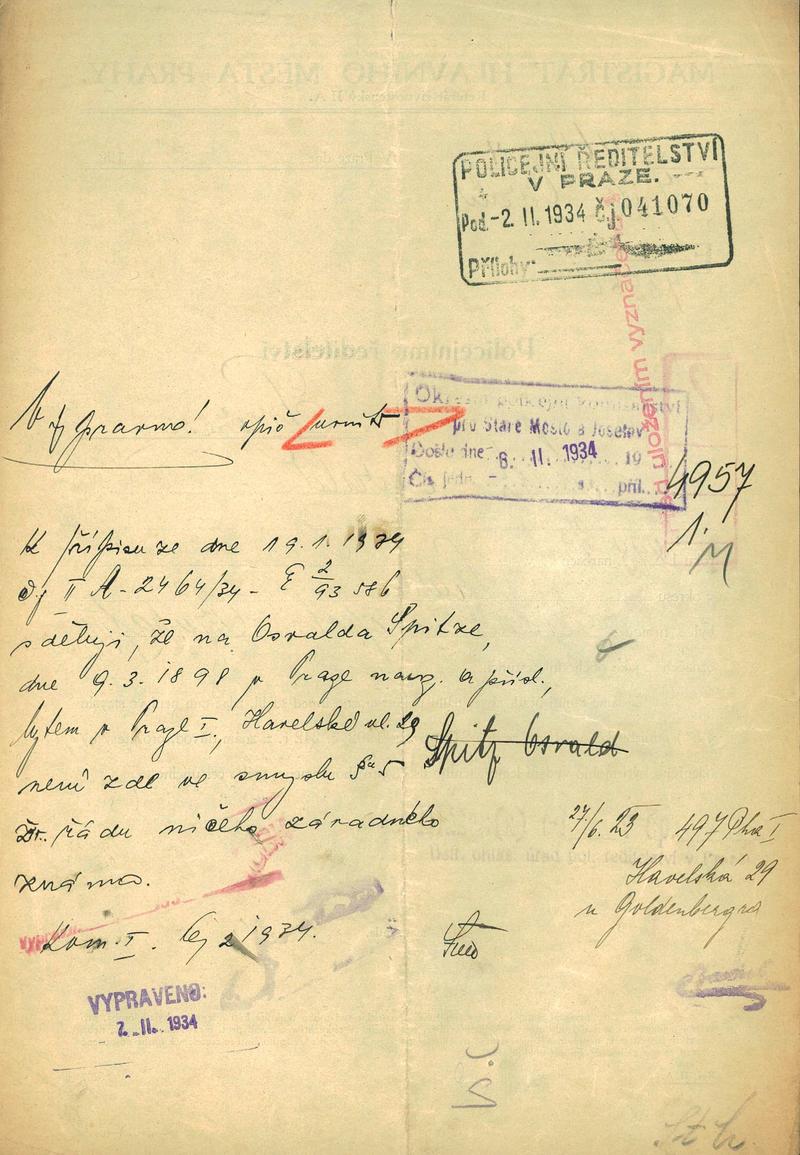 POLICEJNÍ ŘEDITELSTVÍ
V PRAZE.
Pod. -2. II. 1934 Čj 041070
Přílohy:
Okresní policejní komisařství
pro Staré Město a Josefov
Došlo dne 6. II. 1934 19
Čís. jedn. příl.
4957
1.
K přípisu ze dne 19.1.1934
čj II A - 2464/34 - E 2/93 586
sděluji, že na Osvalda Spitze,
dne 9.3.1898 v Praze naroz. a přísl.,
bytem v Praze I., Havelská ul. 29
Spitz Osvald
není zde ve smyslu § 5
řádu ničeho závadného
známo.
27/6. 23 497 Pha I
Havelská 29
u Goldenbergra
Kom. I. 6/2 1934.
VYPRAVENO:
7. II. 1934